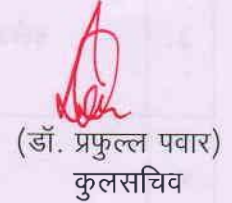 (डॉ. प्रफुल्ल पवार)
कुलसचिव